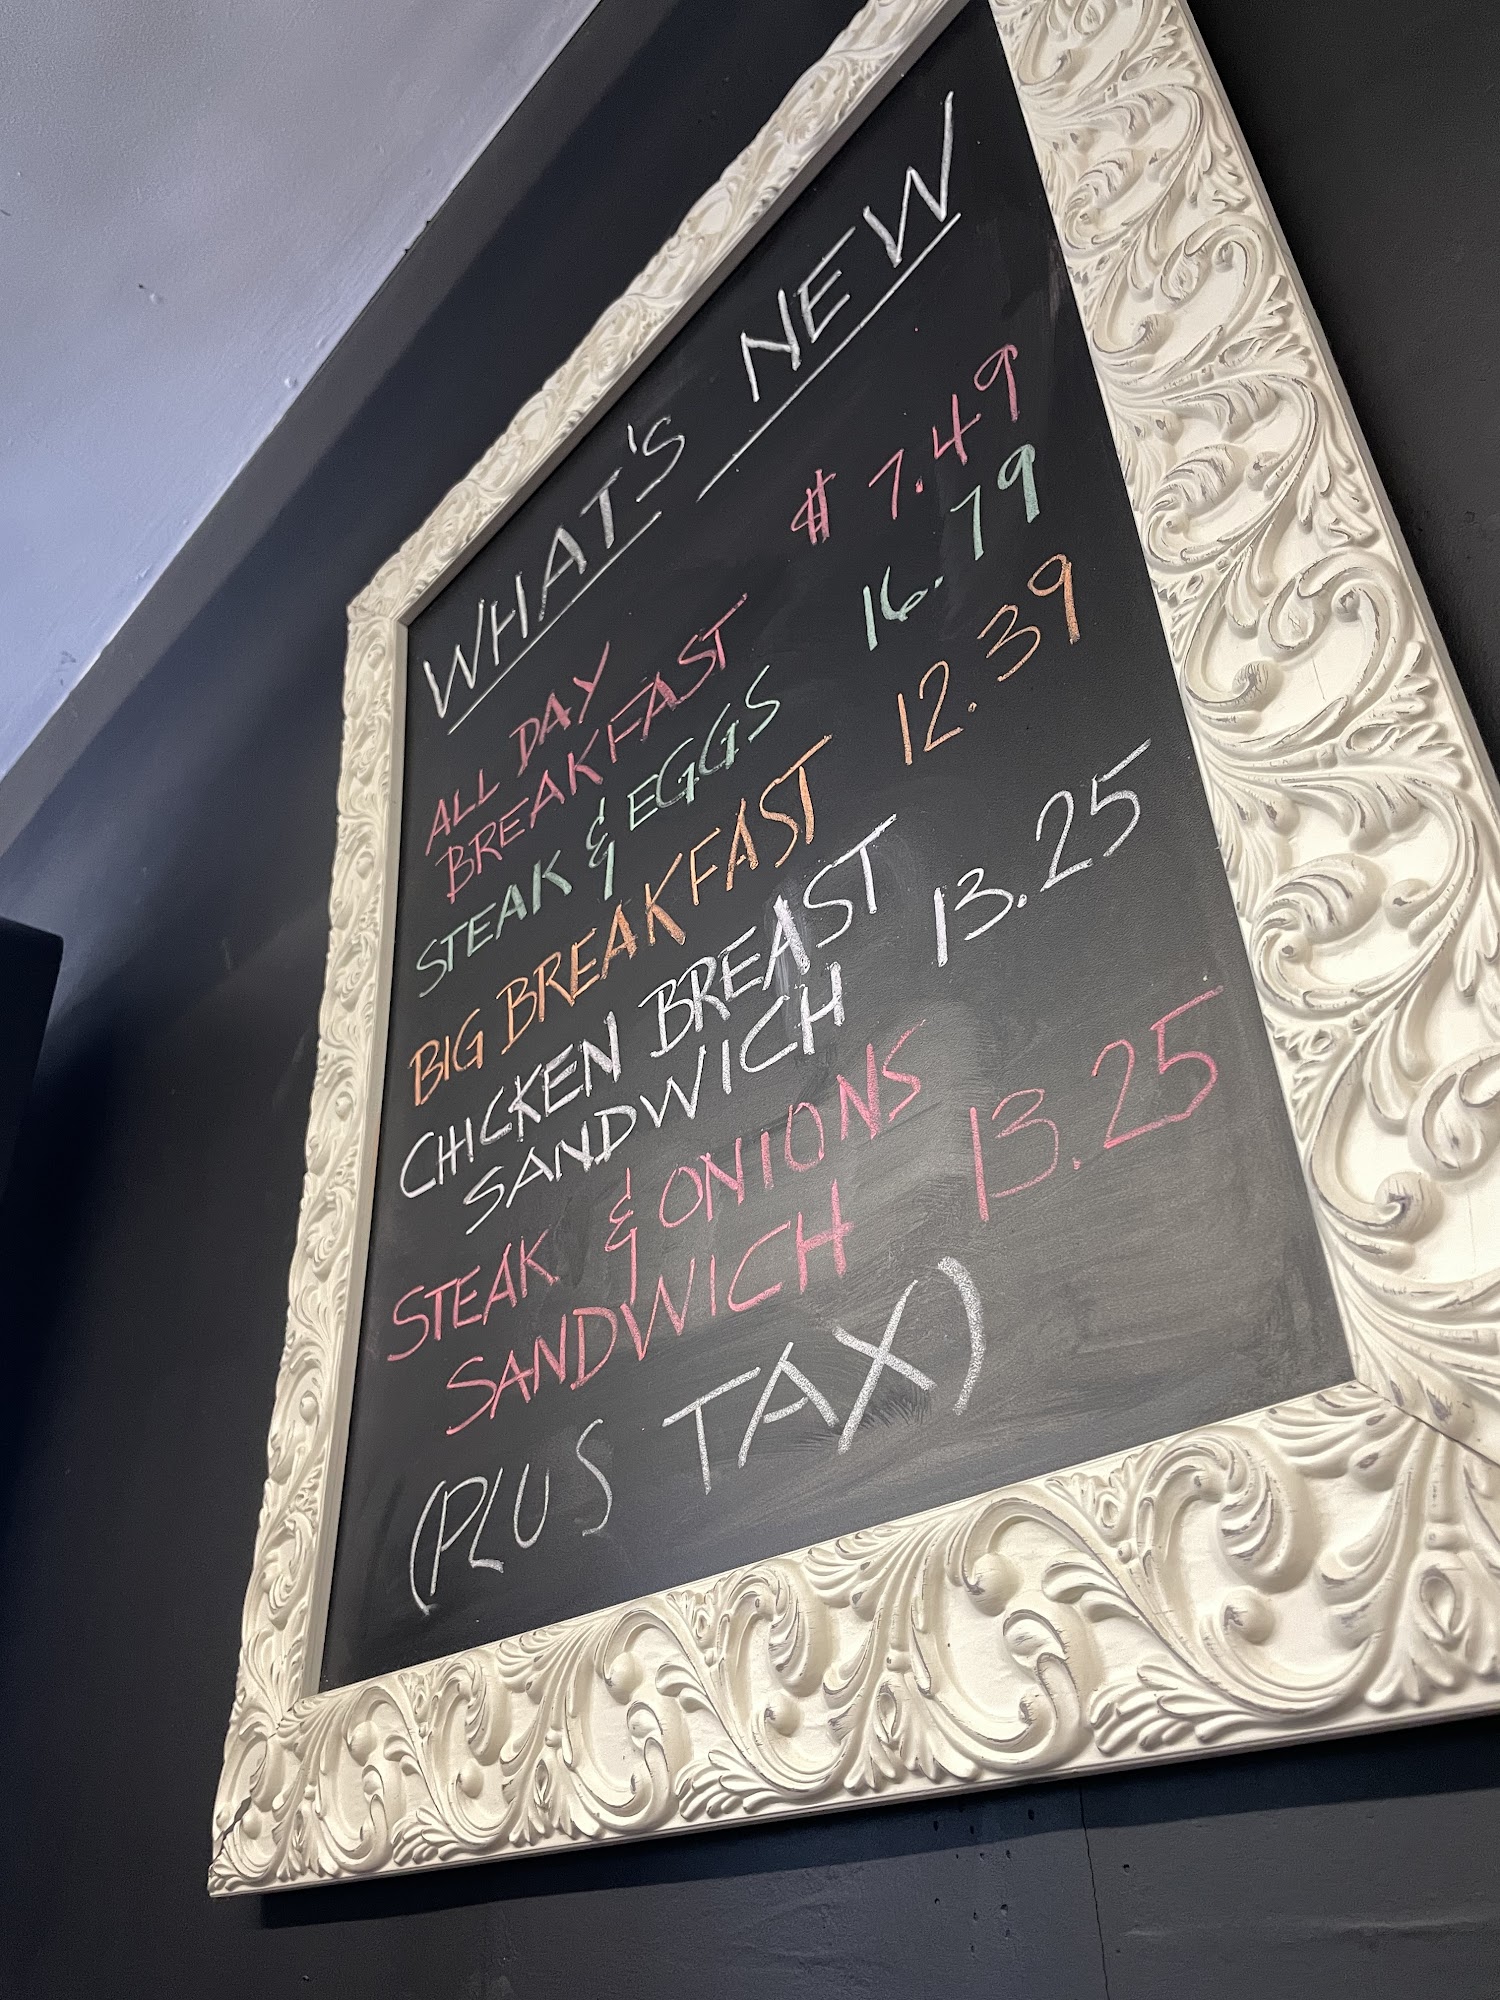 WHAT'S NEW
ALL DAY
BREAKFAST $ 7.49
STEAK & EGGS 16.79
BIG BREAKFAST 12.39
CHICKEN BREAST 13.25
SANDWICH
STEAK & ONIONS 13.25
SANDWICH
(PLUS TAX)